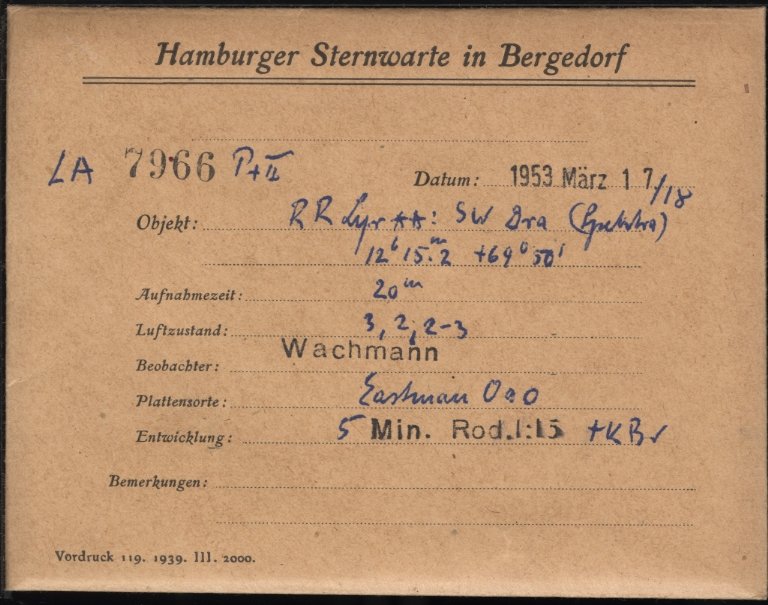 Hamburger Sternwarte in Bergedorf
LA 7966 P+II
Datum: 1953 März 17/18
Objekt: RR Lyr **: SW Dra (Spektra)
12h 15m.2 +69° 50'
Aufnahmezeit: 20m
Luftzustand: 3, 2, 2-3
Beobachter: Wachmann
Plattensorte: Eastman OaO
Entwicklung: 5 Min. Rod.1:15 +KBr
Bemerkungen:
Vordruck 119. 1939. III. 2000.